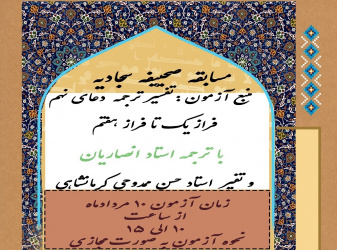 مسابقه صحیفه سجادیه
منبع آزمون : تفسیر ترجمه دعای نهم
فراز یک تا فراز هفتم
با ترجمه استاد انصاریان
و تفسیر استاد حسن ممدوحی کرمانشاهی
زمان آزمون ۱۰ مردادماه
از ساعت
۱۰ الی ۱۵
نحوه آزمون به صورت مجازی